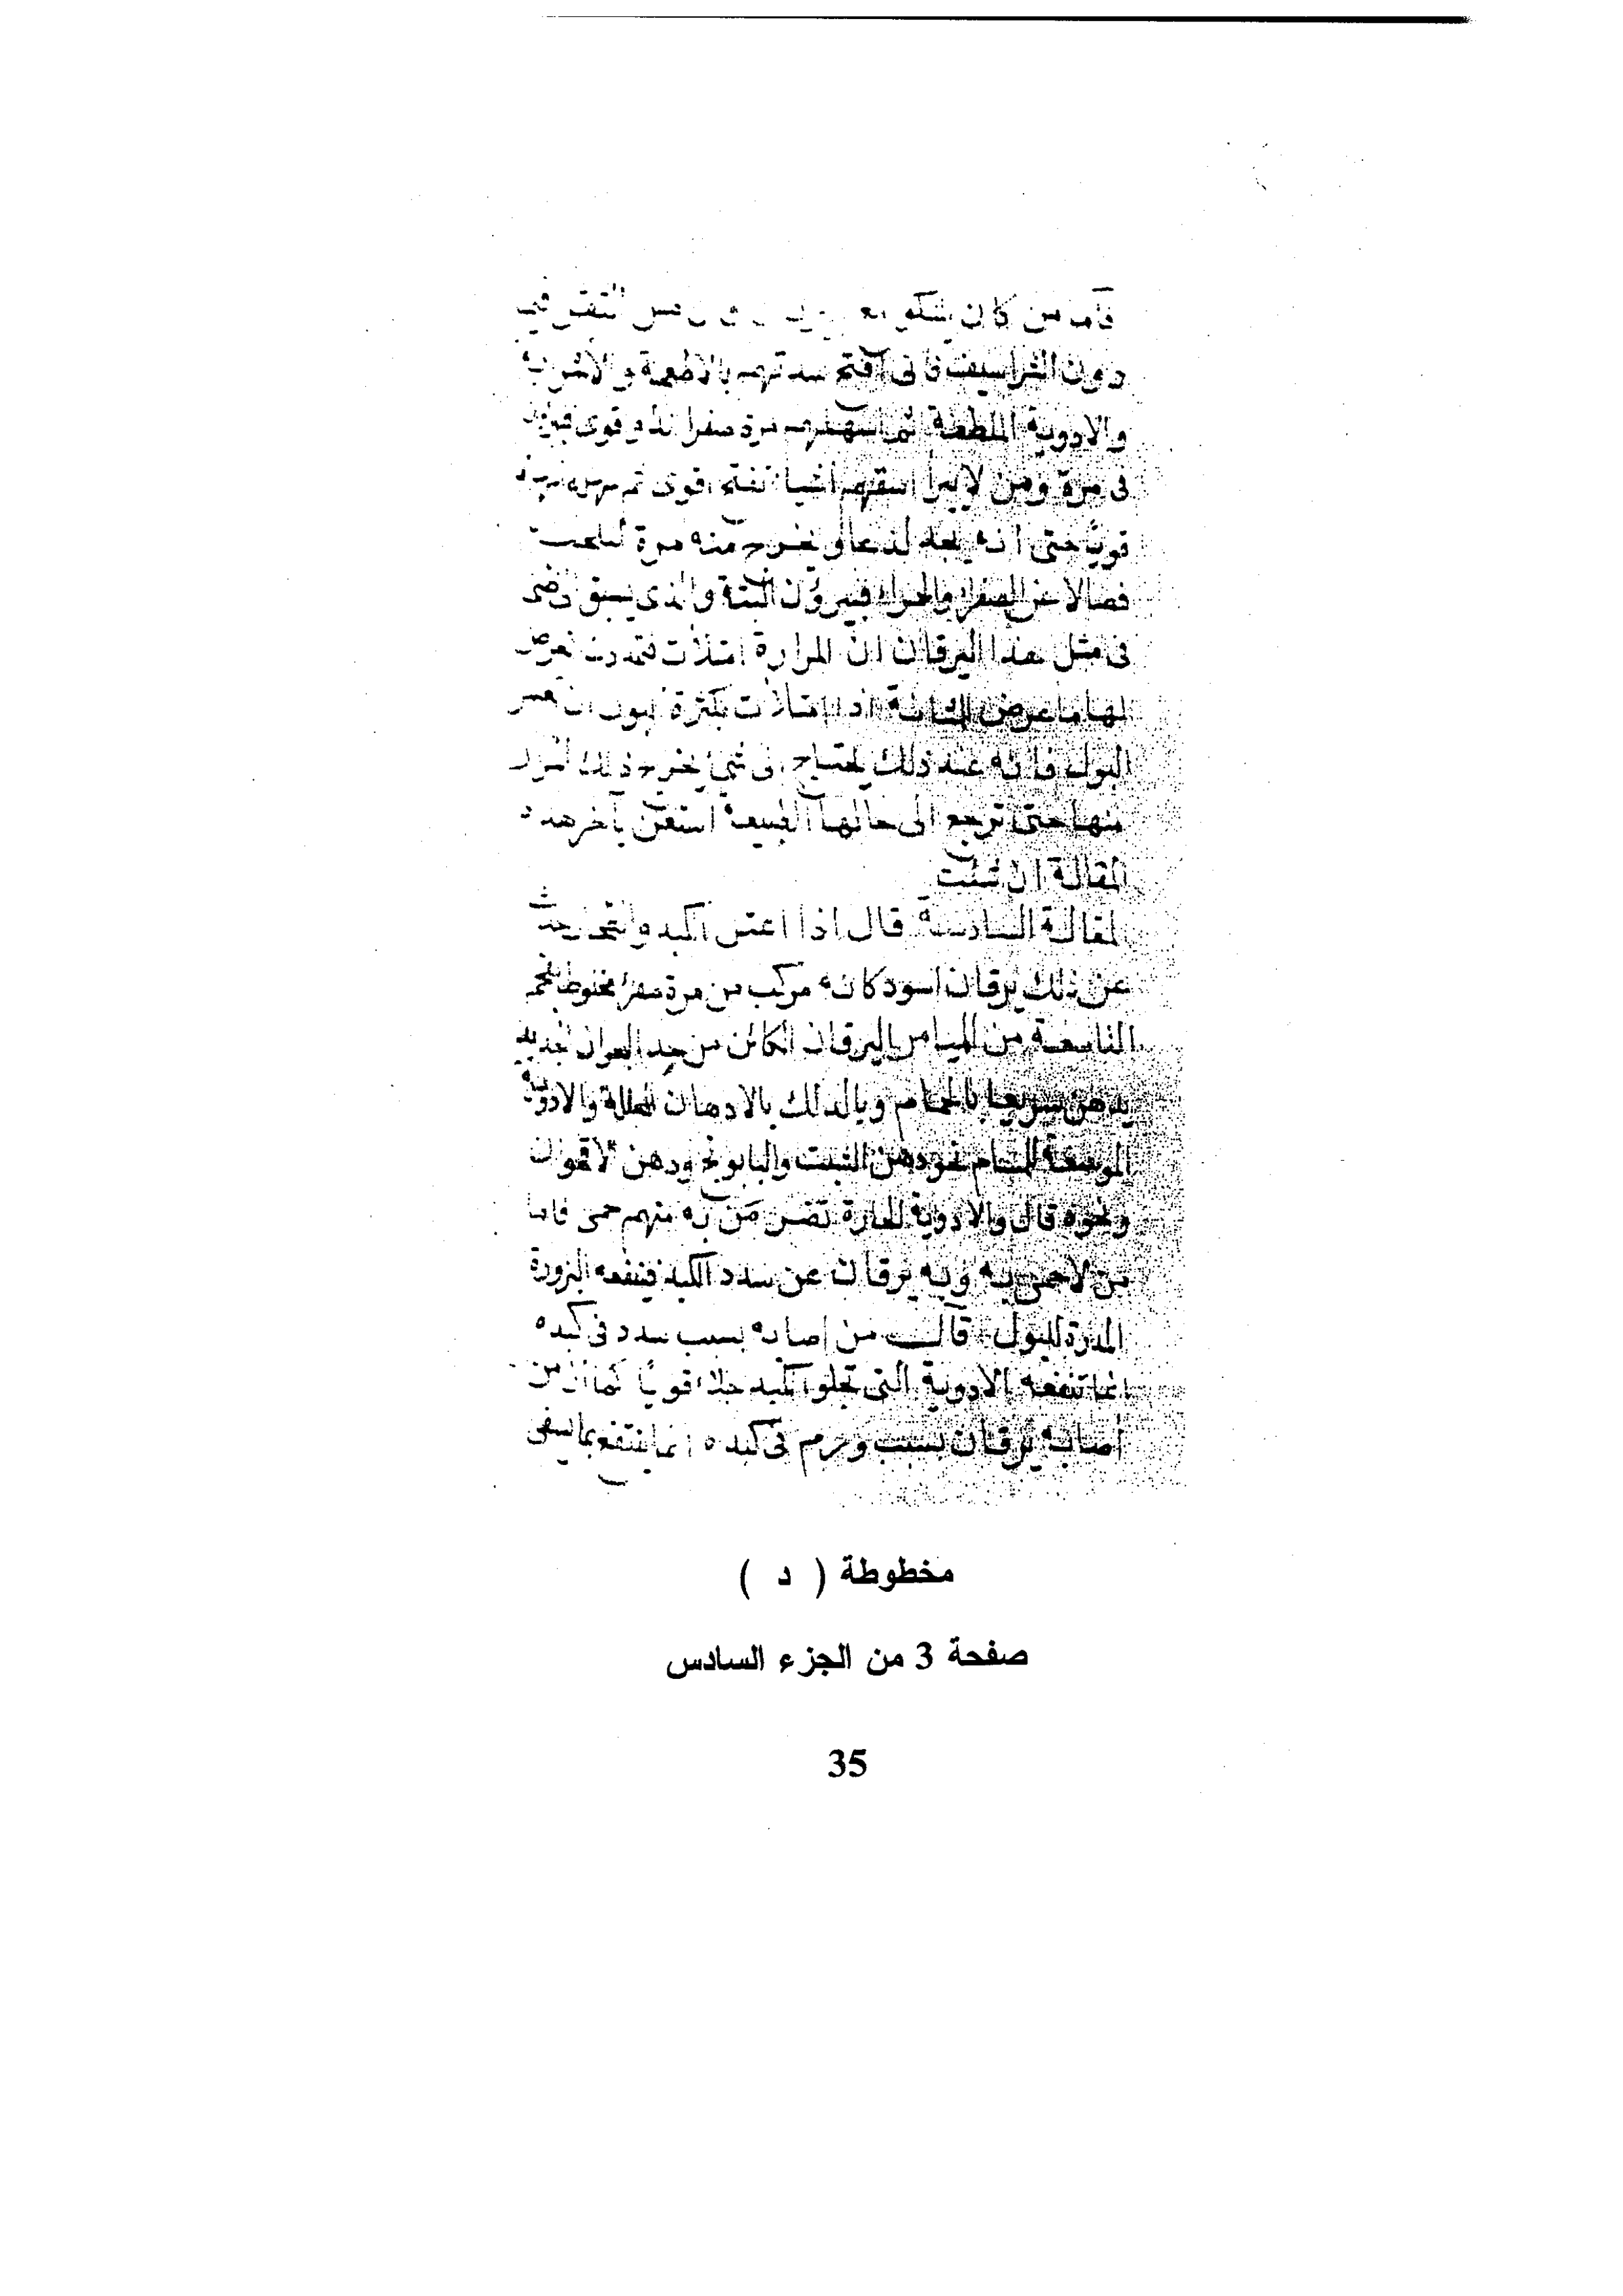 فأما من كان يشكو مع
دون الشراسيف فانى افتح سددهم بالاطعمة والاشربة
والادوية الملطفة ثم اسهلهم مرة صفرا بدوا قوى فيبرؤن
فى مرة ومن لا يبرا اسقيهم اشيا تفتح اقوى ثم
قويا حتى انه يجد لذعا ويخرج منه مرة
فضلا عن الصفرا فيبرؤن البتة والذى يسبق
فى مثل هذا اليرقان ان المرارة امتلات فتمددت فعرض
لها ما عرض للمثانة اذا امتلات بكثرة البول ان تعسر
البول فانه عند ذلك يحتاج الى شئ يخرج ذلك
منها حتى ترجع الى حالها الطبيعية استعن بآخر هذه
المقالة ان شئت
المقالة السادسة قال اذا اعتل الكبد والطحال حدث
عن ذلك يرقان اسود كانه مركب من مرة صفرا مخلوط بفحم
التاسعة من الميامر اليرقان الكائن من جيد البحران
يذهب سريعا بالحمام وبالدلك بالادهان المحللة والادوية
الموسعة للمسام نحو دهن الشبث والبابونج ودهن الاقحوان
ونحوه قال والادوية الحارة تضر من به منهم حمى فاما
من لا حمى به وبه يرقان عن سدد الكبد فينفعه البزورة
المدرة للبول قال من اصابه بسبب سدد فى كبده
انما تنفعه الادوية التى تجلو الكبد جلاء قويا كما ان من
اصابه يرقان بسبب ورم فى كبده انما ينتفع بما يسقى
مخطوطة ( د )
صفحة 3 من الجزء السادس
35